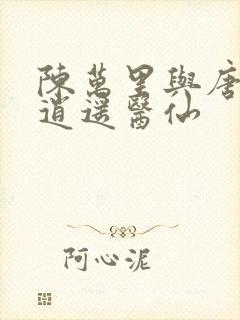 陳萬里與唐
逍遥醫仙
阿心泥